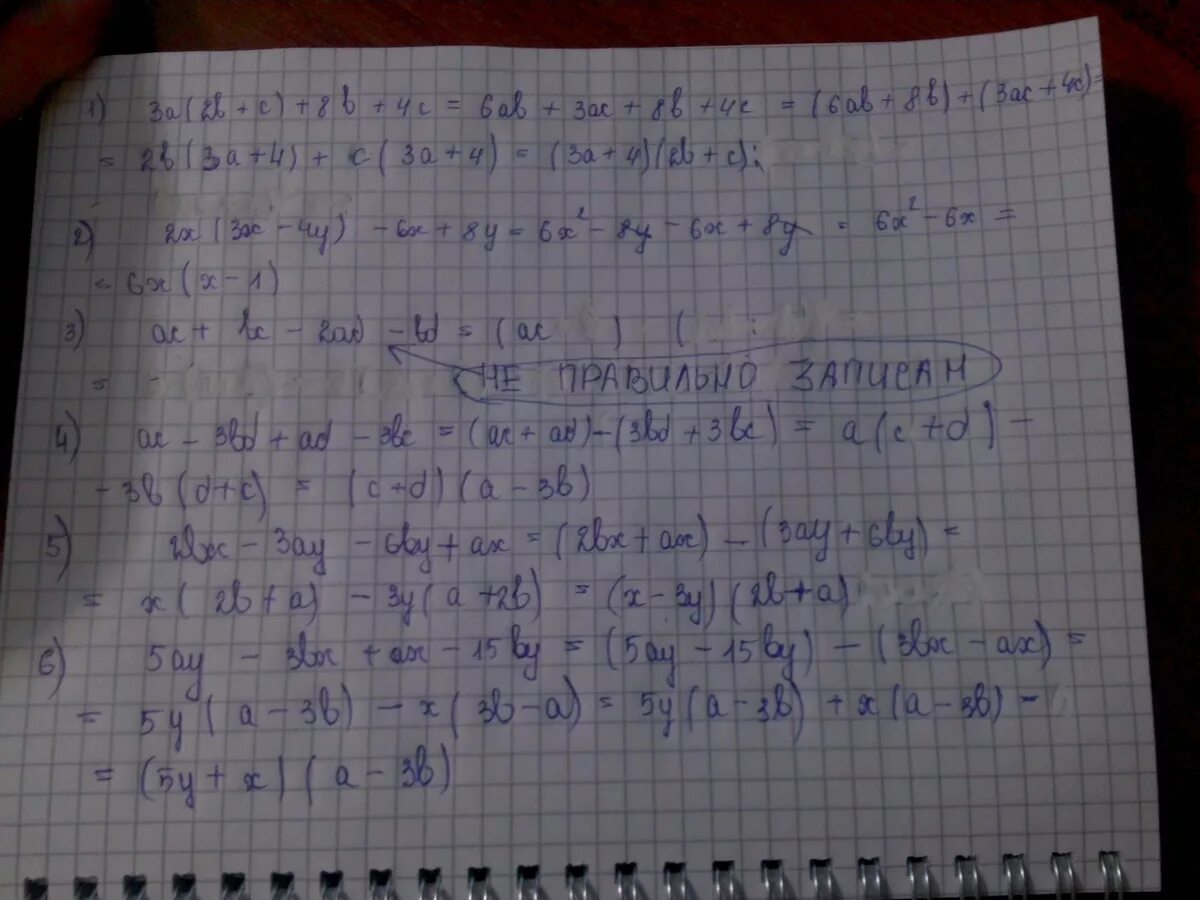 1) 3a(2b+c)+8b+4c = 6ab+3ac+8b+4c = (6ab+8b)+(3ac+4c)=
= 2b(3a+4)+c(3a+4) = (3a+4)(2b+c);
2) 2x(3x-4y)-6x+8y = 6x²-8y-6x+8y = 6x²-6x =
= 6x(x-1)
3) ac+bc-2ad-bd = (ac ) (
= НЕ ПРАВИЛЬНО ЗАПИСАН
4) ac-3bd+ad-3bc = (ac+ad)-(3bd+3bc) = a(c+d)-
-3b(d+c) = (c+d)(a-3b)
5) 2bx-3ay-6by+ax = (2bx+ax)-(3ay+6by) =
= x(2b+a)-3y(a+2b) = (x-3y)(2b+a)
6) 5ay-3bx+ax-15by = (5ay-15by)-(3bx-ax) =
= 5y(a-3b)-x(3b-a) = 5y(a-3b)+x(a-3b) =
= (5y+x)(a-3b)